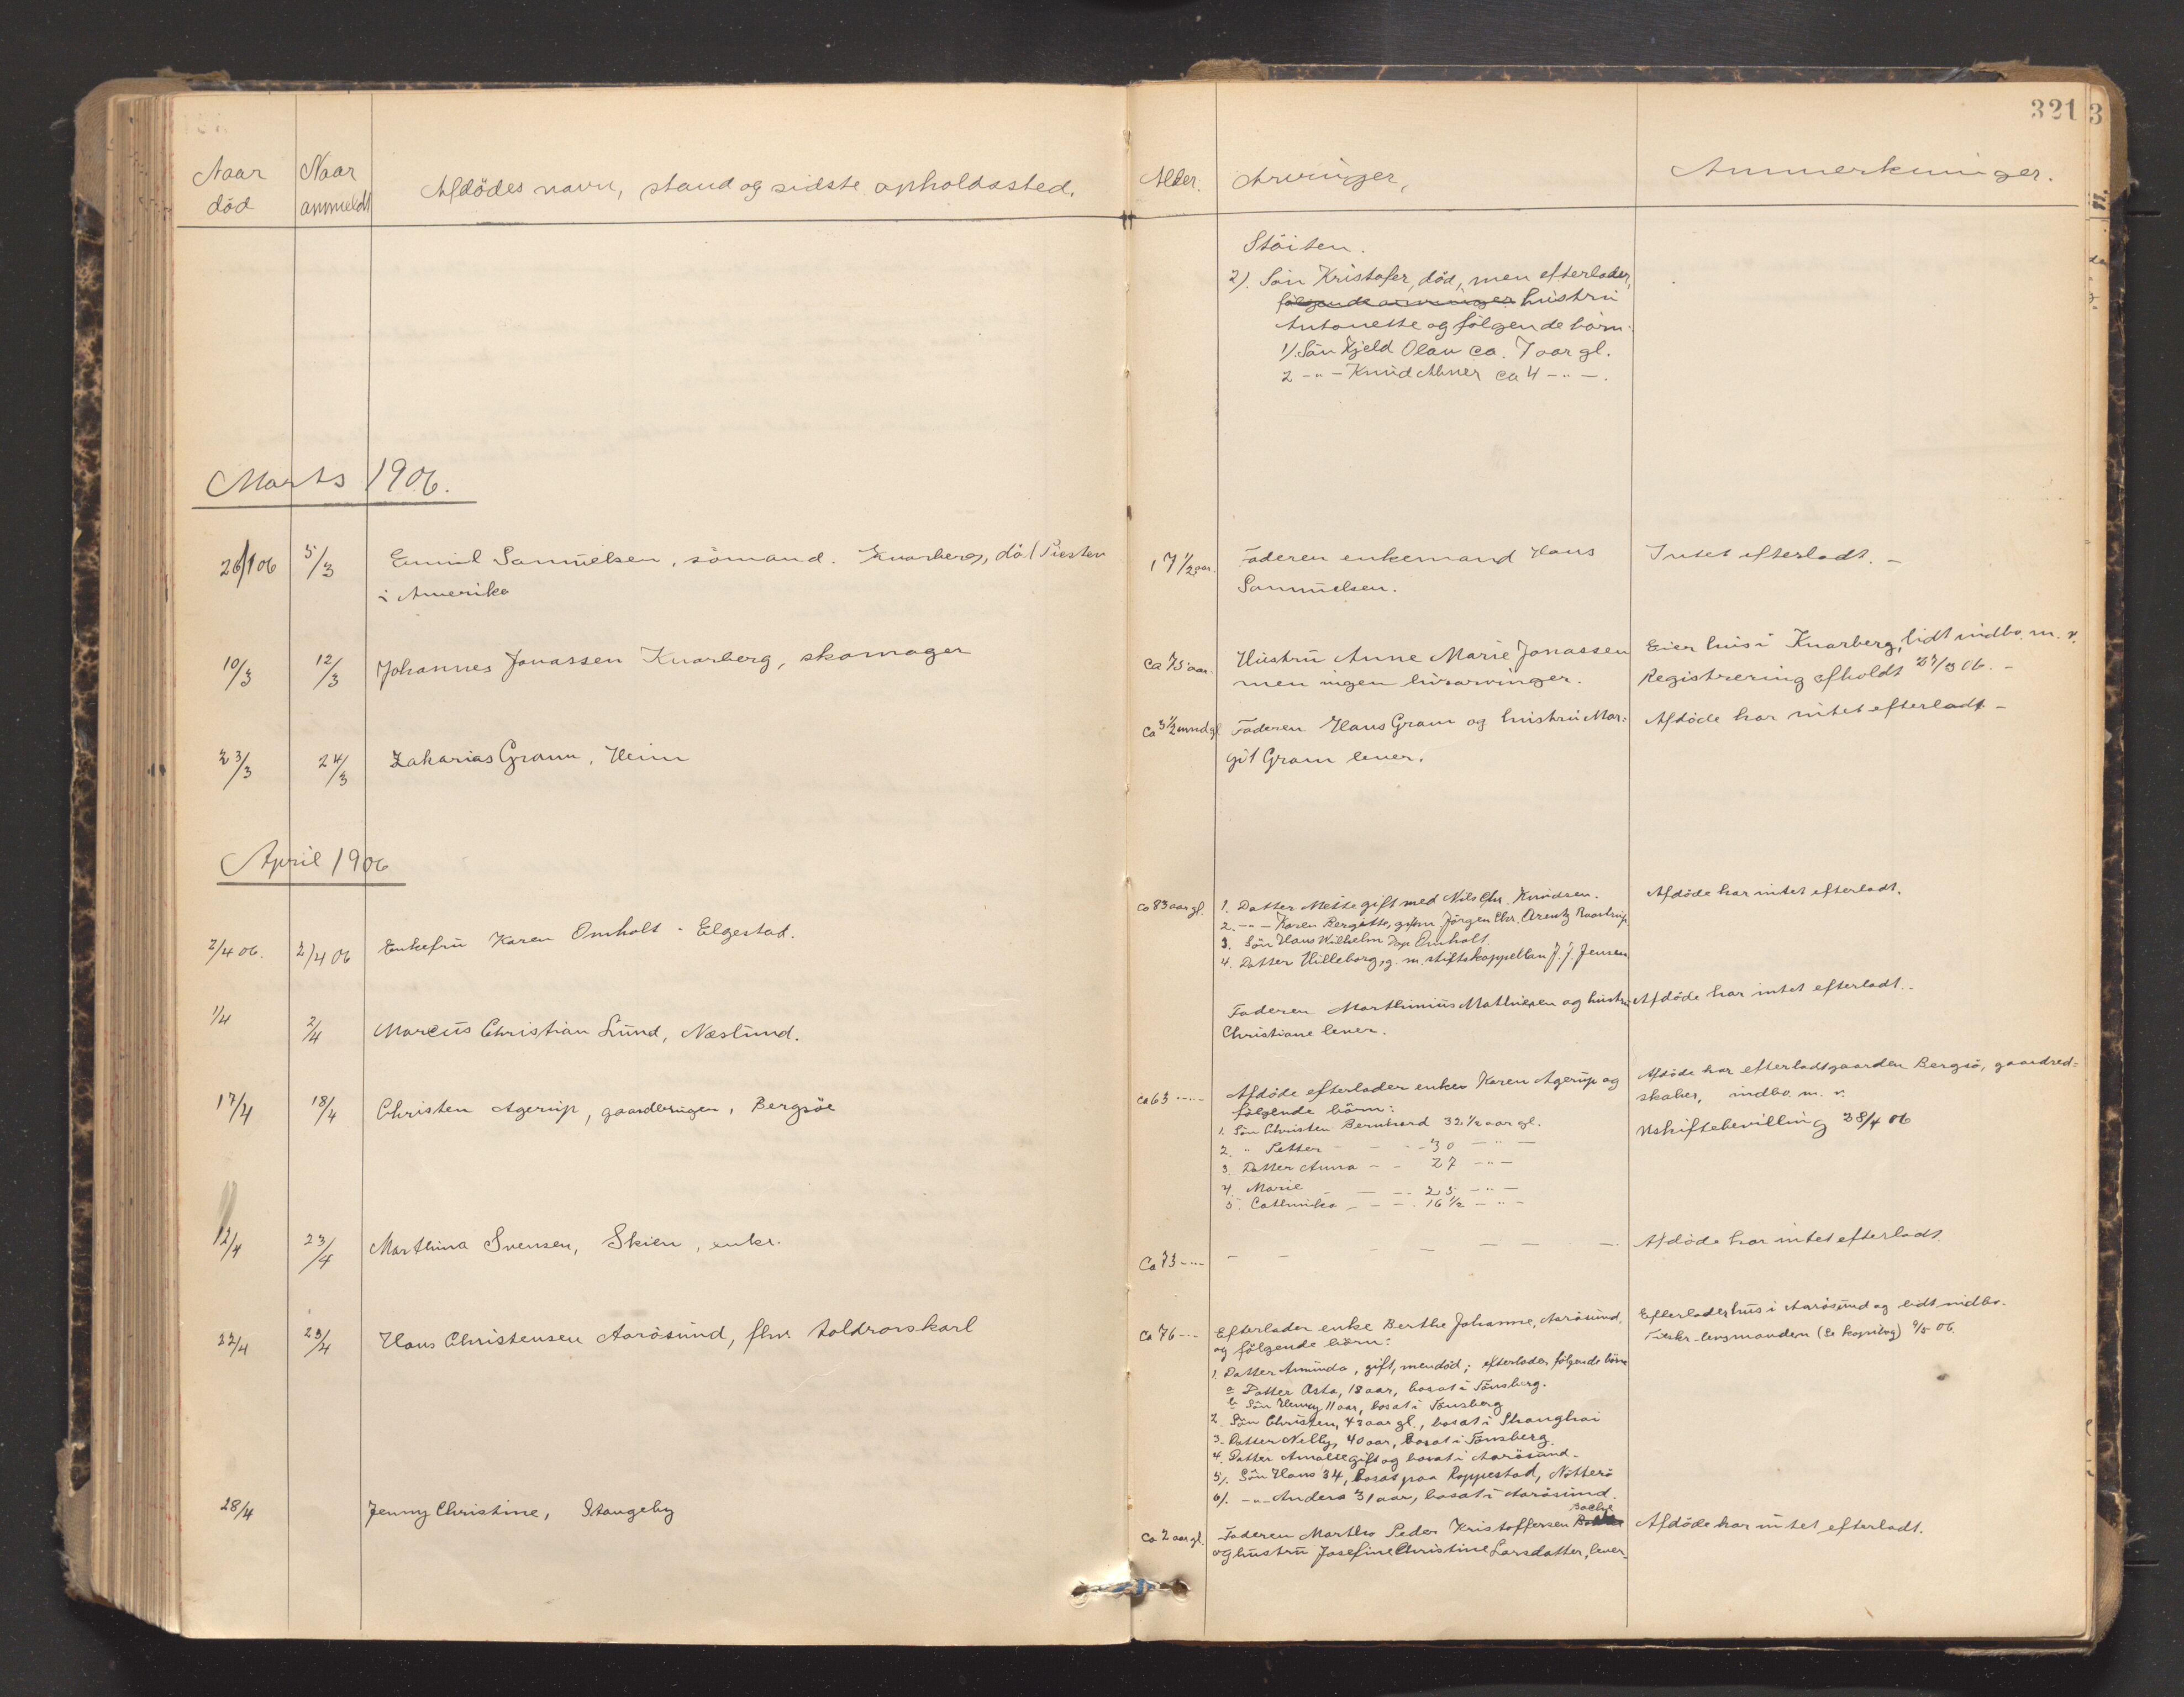 321
Naar død
Naar anmeldt
Afdödes navn, stand og sidste opholdssted.
Alder.
Arvinger,
Anmerkninger.
Stöiten.
2). Sön Kristofer, död, men efterlader,
følgende arvinger hustru
Antonette og følgende børn:
1). Sön Kjeld Olav ca. 7 aar gl.
2 -"- Knud Abner ca 4 -"-.
Marts 1906.
26/1 06 5/3 Emil Samuelsen, sömand. Knarberg, död i
i Amerika
17 1/2 aar. Faderen enkemand Hans
Samuelsen.
Intet efterladt. -
10/3 12/3 Johannes Jonassen Knarberg, skomager
Ca 75 aar. Hustru Anne Marie Jonassen
men ingen livsarvinger.
Eier hus i Knarberg, lidt indbo. m. v.
Registrering afholdt 27/3 06. -
23/3 24/3 Zakarias Gram, Heim
Ca 3 1/2 mnd gl Faderen Hans Gram og hustru Mar-
git Gram lever.
Afdöde har intet efterladt -
April 1906
2/4 06. 2/4 06 Enkefru Karen Omholt - Elgestad.
Ca 83 aar gl. 1. Datter Mette gift med Nils Chr. Knudsen.
2. -"- Karen Bergitte, gift m. Jörgen Chr. Arentz Raastrup.
3. Sön Hans Wilhelm Omholt.
4. Datter Hilleborg, g. m. stiftskappellan J. J. Jensen
Afdöde har intet efterladt.
1/4 2/4 Marcus Christian Lund, Næslund.
Faderen Marthinius Mathisen og hustru
Christiane lever.
Afdöde har intet efterladt.
17/4 18/4 Christen Agerup, gaardbruger, Bergsöe
ca 63 -"- Afdöde efterlader enken Karen Agerup og
følgende börn:
1. Sön Christen Bernhard 32 1/2 aar gl.
2. " Petter - - - 30 -"-
3. Datter Anna - - 27 -"-
4. Marie - - 23 -"-
5. Cathrinka - - - 16 1/2 -"-
Afdöde har efterladt gaarden Bergsö, gaardred-
skaber, indbo. m. v.
Uskiftebevilling 28/4 06
12/4 23/4 Marthina Svensen, Skien, enke.
Ca 73 -"- - - - - - - -
Afdöde har intet efterladt.
22/4 23/4 Hans Christensen Aarösund, fhv. toldrorskarl
Ca 76 -"- Efterlader enke Berthe Johanne, Aarösund.
og følgende börn:
1. Datter Aminda, gift, men död; efterlader følgende börn
a Datter Asta, 18 aar, bosat i Tönsberg.
b Sön Henry 11 aar, bosat i Tönsberg
2. Sön Christen, 43 aar gl., bosat i Shanghai
3. Datter Nelly, 40 aar, bosat i Tönsberg.
4. Datter Amalie gift og bosat i Aarösund.
5/. Sön Hans 34, bosat paa Roppestad, Nötterö
6/. -"- Anders 31 aar, bosat i Aarösund.
Efterlader hus i Aarösund og lidt indbo.
lensmanden (Se kopibog) 9/5 06.
28/4 Jenny Christine, Stangeby
Ca 2 aar gl. Faderen Marthin Peder Kristoffersen Bache
og hustru Josefine Christine Larsdatter, lever.
Afdöde har intet efterladt.